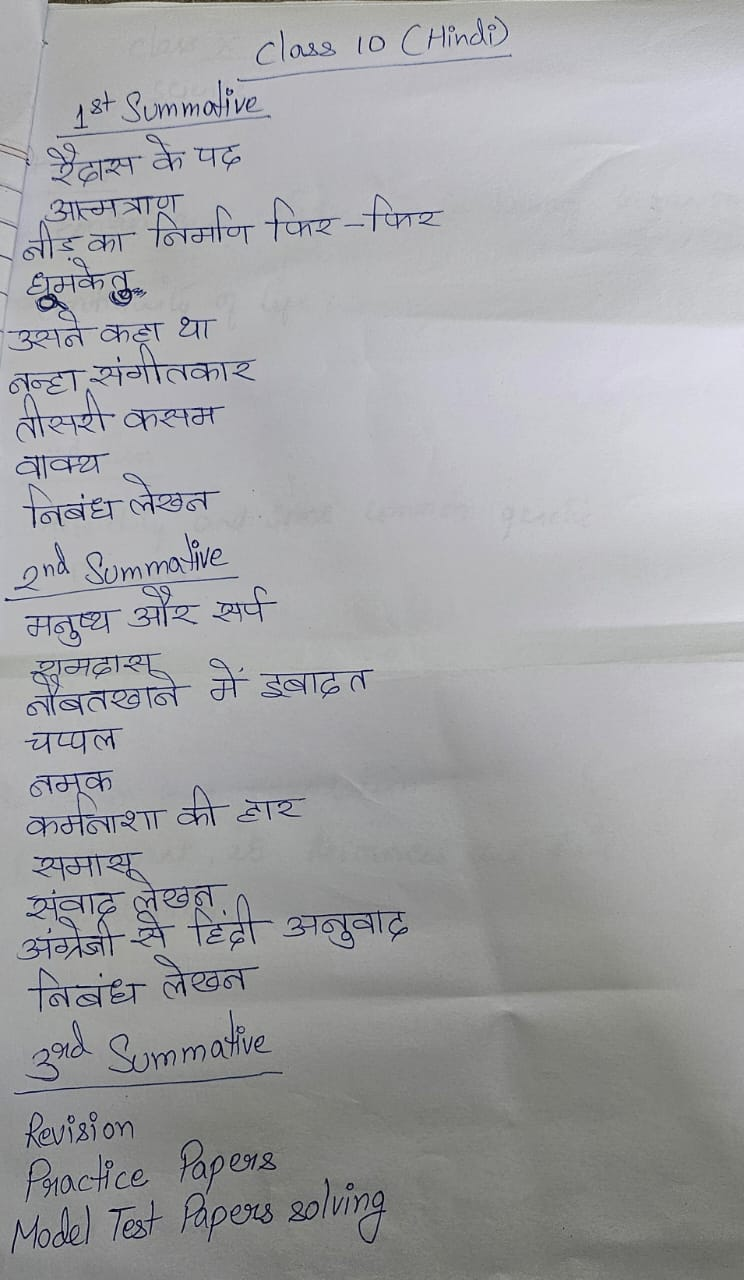 Class 10 (Hindi)
1st Summative
रैदास के पद
आत्मत्राण
नीड़ का निर्माण फिर-फिर
धूमकेतु
उसने कहा था
नन्हा संगीतकार
तीसरी कसम
वाक्य
निबंध लेखन
2nd Summative
मनुष्य और सर्प
रामदास
नौबतखाने में इबादत
चप्पल
नमक
कर्मनाशा की हार
समास
संवाद लेखन
अंग्रेजी से हिंदी अनुवाद
निबंध लेखन
3rd Summative
Revision
Practice Papers
Model Test Papers solving